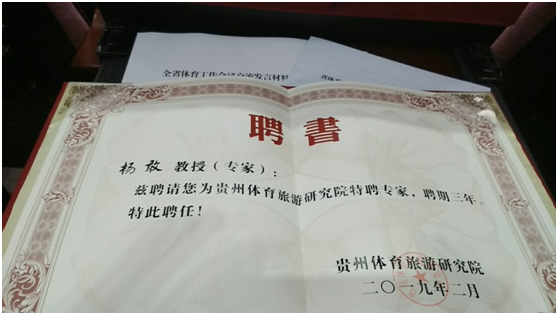 全省体育工作会议交流发言材料
聘書
杨敢 教授（专家）：
兹聘请您为贵州体育旅游研究院特聘专家，聘期三年。
特此聘任！
贵州体育旅游研究院
二〇一九年二月